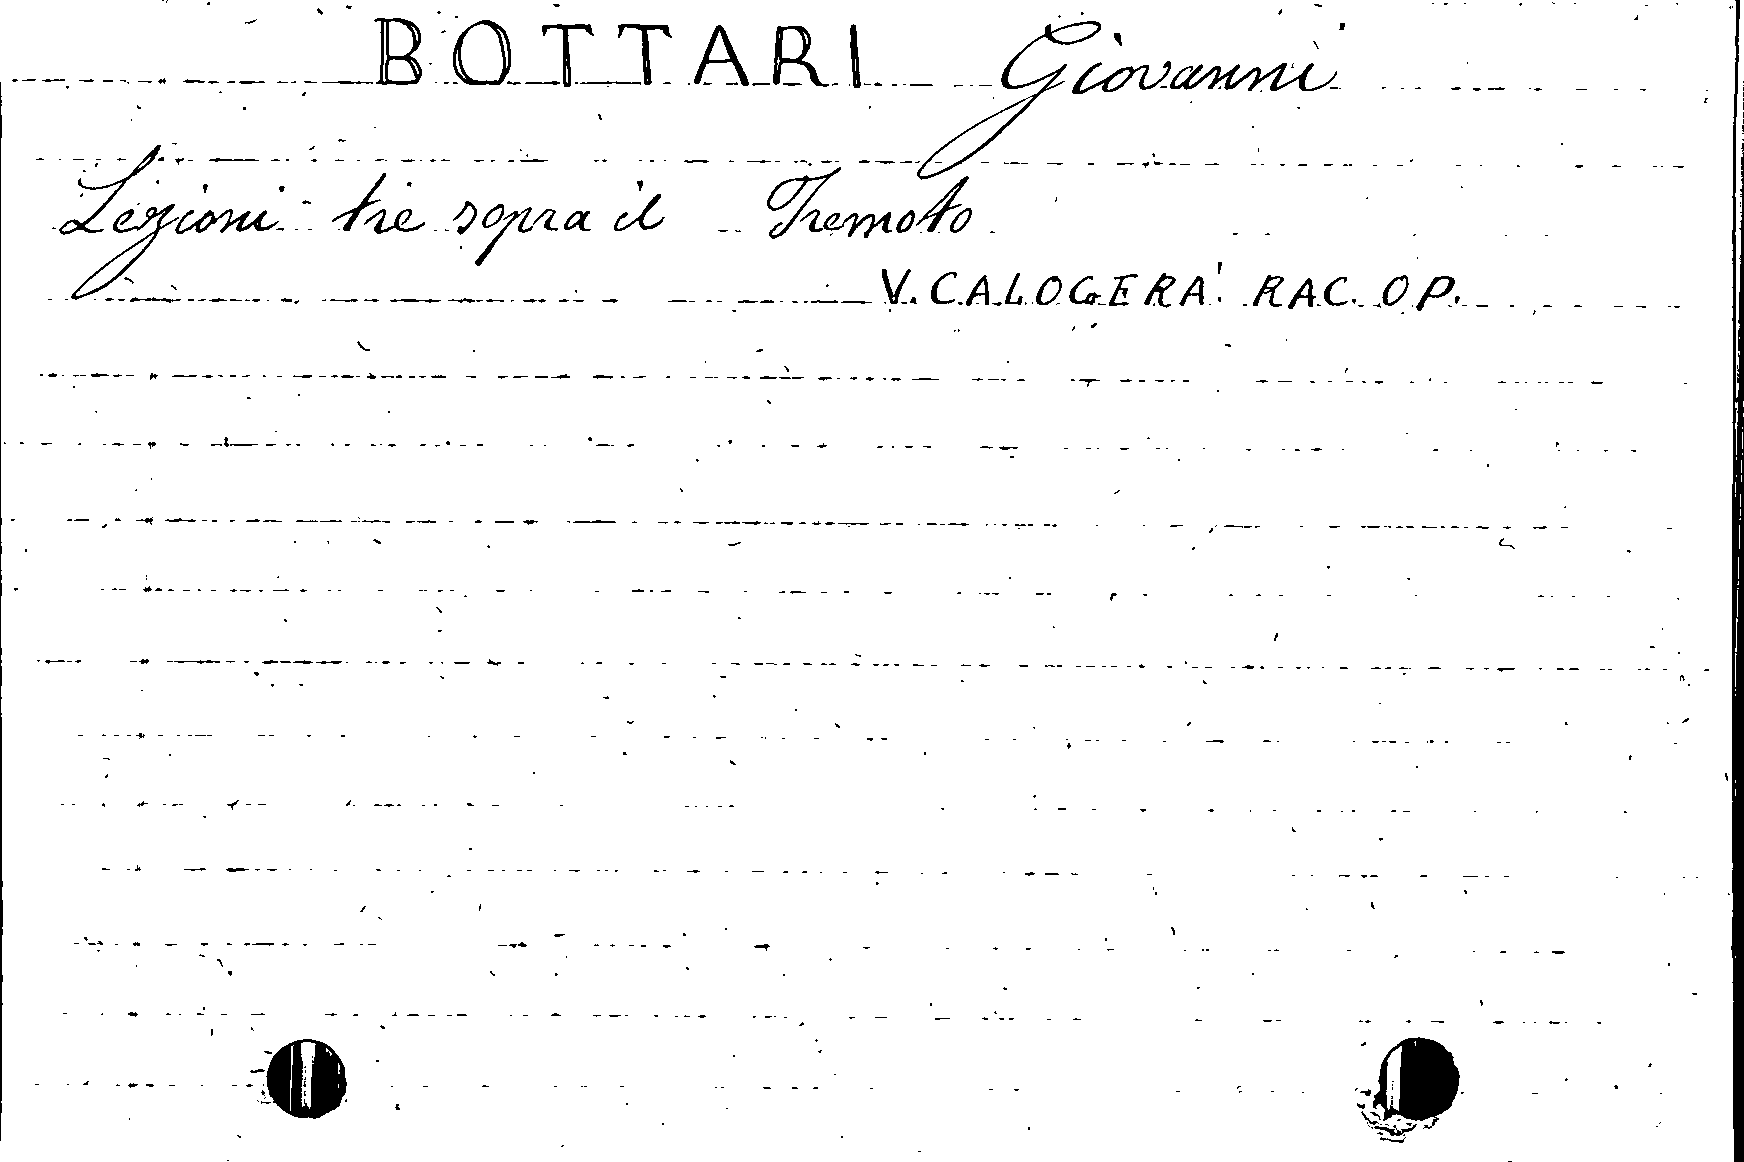 BOTTARI Giovanni
Lezioni tre sopra il Tremoto
V. CALOGERA' RAC. OP.